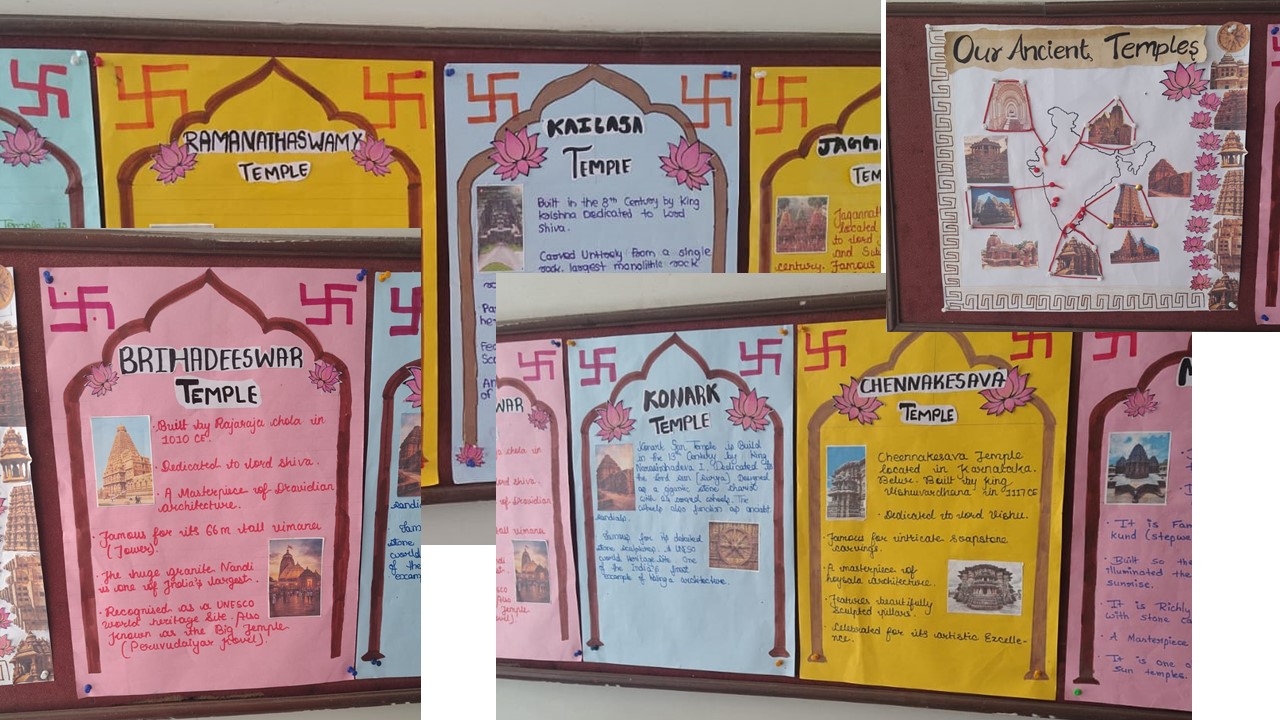 RAMANATHASWAMY
TEMPLE
KAILASA
TEMPLE
Built in the 8th Century by King
krishna Dedicated to Lord
Shiva.
Carved Untirely from a single
rock, largest monolithic rock
JAGA
TEM
Jagannath
located
to lord
and Sub
century. Famous
Our Ancient Temples
BRIHADEESWAR
TEMPLE
• Built by Rajaraja chola in
1010 CE.
• Dedicated to lord Shiva.
• A Masterpiece of Dravidian
architecture.
• Famous for its 66m tall vimana
(Tower).
• The huge granite Nandi
is one of India's largest.
• Recognised as a UNESCO
world heritage Site. Also
known as the Big Temple
(Peruvudaiyar Kovil).
WAR
chola in
shiva.
of Dravidian
tall vimana
KONARK
TEMPLE
Konark Sun Temple is Build
in the 13th Century by King
Narasimhadeva I. Dedicated to
the lord sun (surya) Designed
as a gigantic stone chariot
with 24 carved wheels. The
wheels also function as ancient
sundials.
Famous for its detailed
stone sculptures. A UNESCO
world Heritage Site One
of the India's finest
example of Kalinga architecture.
CHENNAKESAVA
TEMPLE
Cheennakesava Temple
located in Karnataka.
Belur. Built by king
Vishnuvardhana in 1117 CE
• Dedicated to lord Vishnu.
• Famous for intricate soapstone
carvings.
• A masterpiece of
hoysala architecture.
• Features beautifully
sculpted pillars.
• Celebrated for its artistic Excelle-
nce.
M
• It is Fam
kund (stepwe
• Built so th
illuminated the
sunrise.
• It is Richly
with stone ca
• A Masterpiece
• It is one o
sun temples.